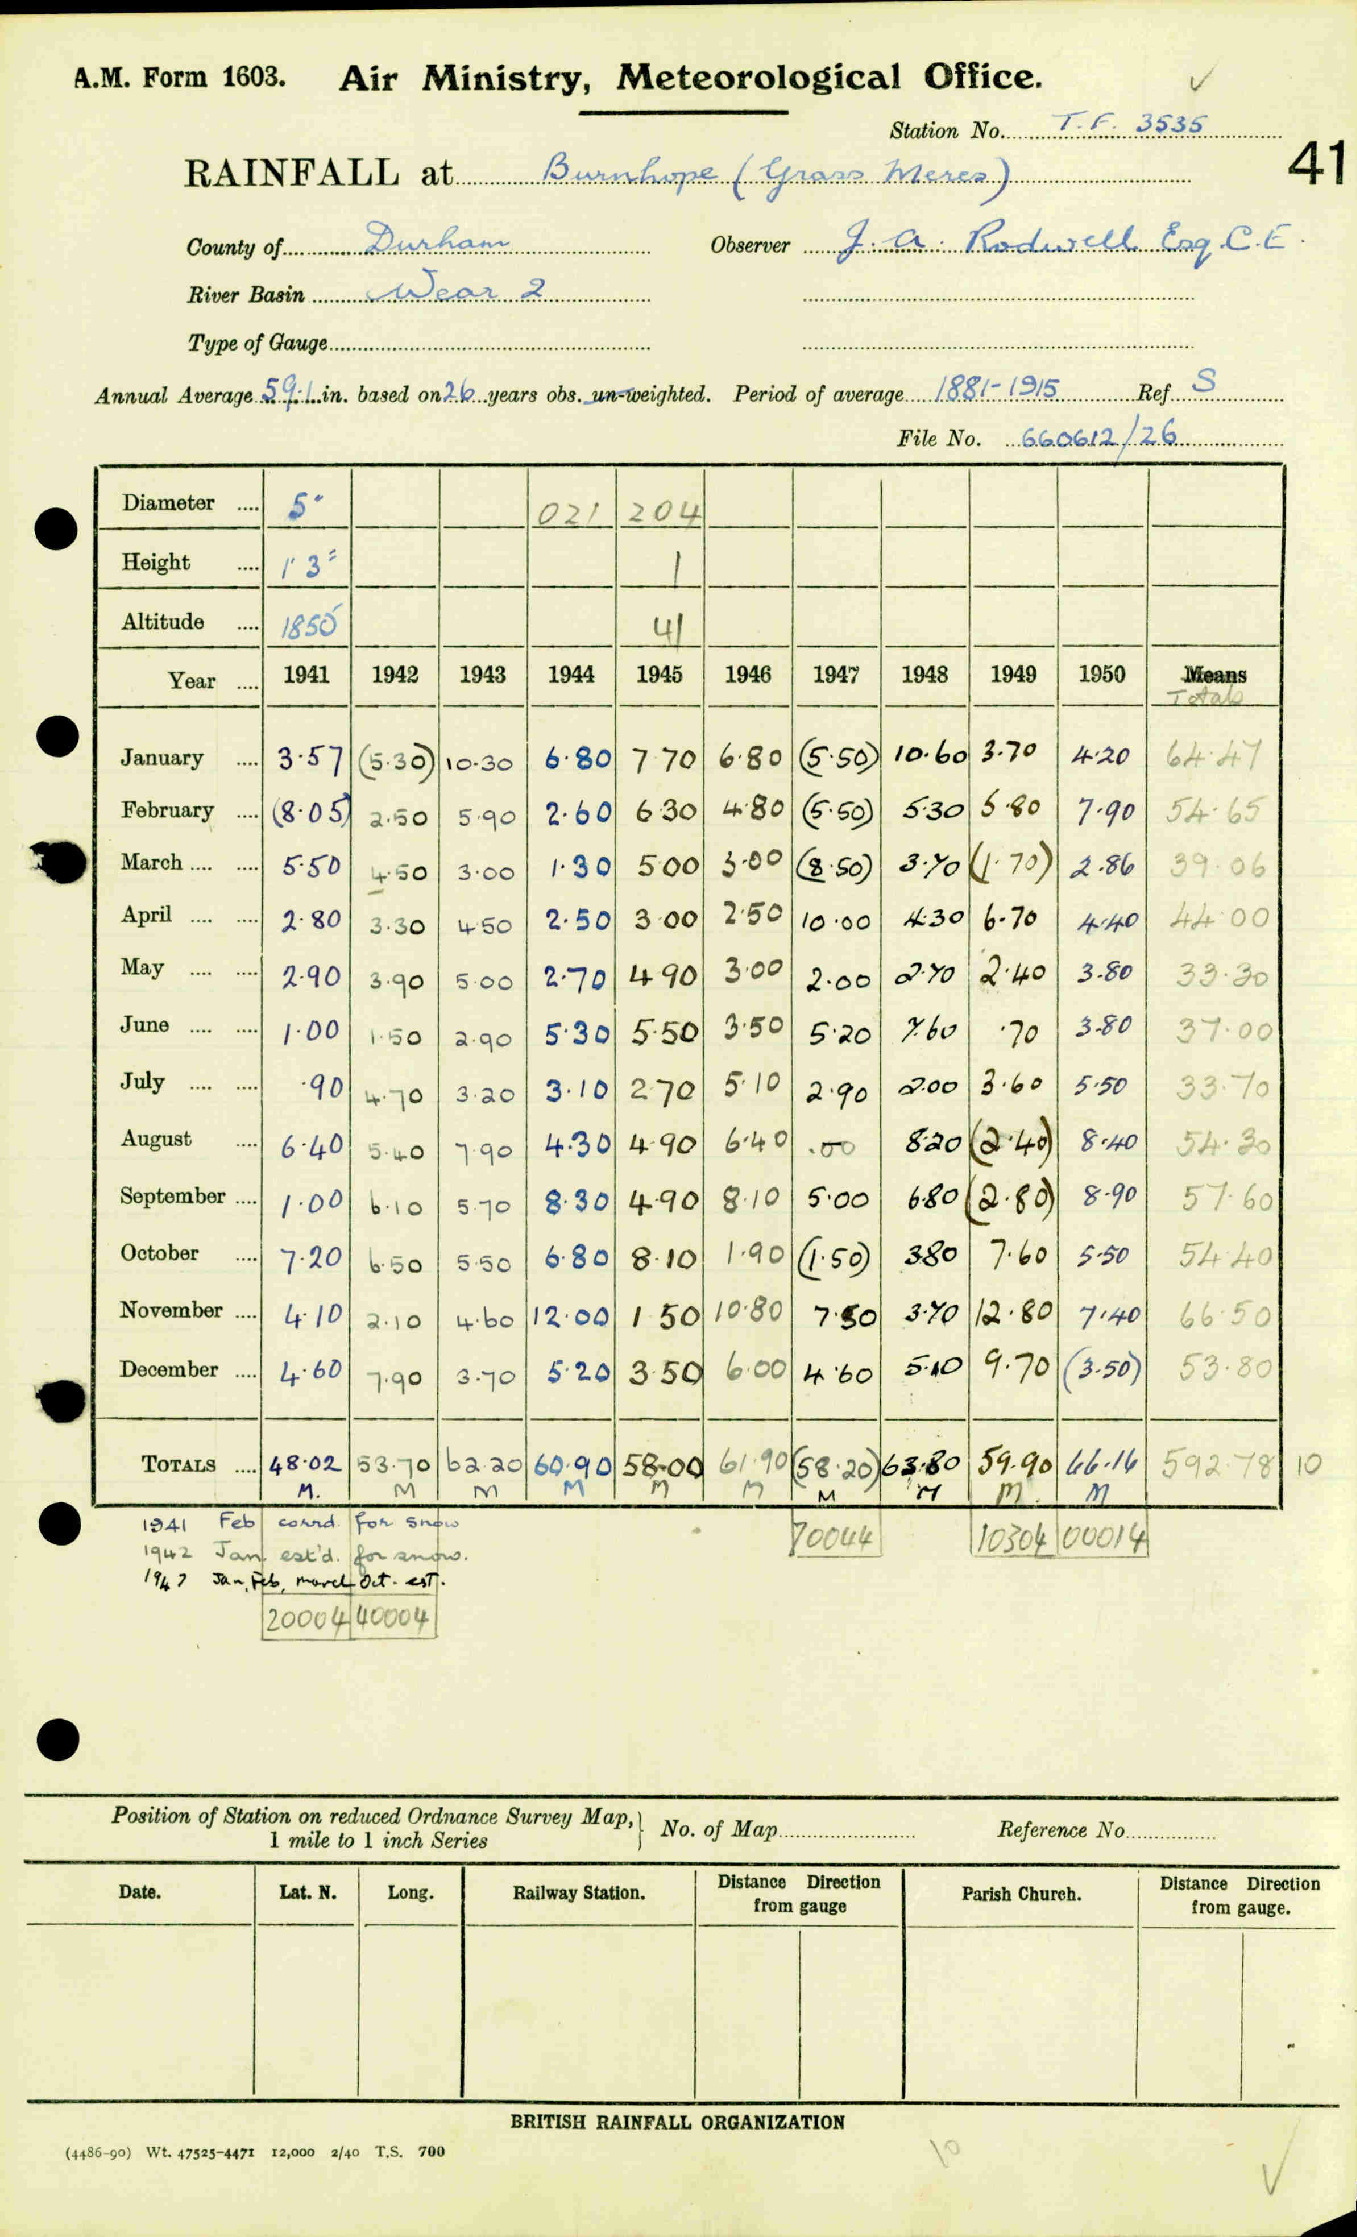 A.M. Form 1603. Air Ministry, Meteorological Office. ✓
Station No. T.F. 3535
41
RAINFALL at Burnhope (Grass Meres)
County of Durham Observer J. A. Rodwell Esq C.E.
River Basin Wear 2
Type of Gauge
Annual Average 59.1 in. based on 26 years obs. un-weighted. Period of average 1881-1915 Ref S
File No. 660612/26
Diameter .... 5" 021 204
Height .... 1' 3" 1
Altitude .... 1850' 41
Year .... 1941 1942 1943 1944 1945 1946 1947 1948 1949 1950 Means
Totals
January .... 3.57 (5.30) 10.30 6.80 7.70 6.80 (5.50) 10.60 3.70 4.20 64.47
February .... (8.05) 2.50 5.90 2.60 6.30 4.80 (5.50) 5.30 5.80 7.90 54.65
March .... .... 5.50 4.50 3.00 1.30 5.00 3.00 (8.50) 3.70 (1.70) 2.86 39.06
April .... .... 2.80 3.30 4.50 2.50 3.00 2.50 10.00 4.30 6.70 4.40 44.00
May .... .... 2.90 3.90 5.00 2.70 4.90 3.00 2.00 2.70 2.40 3.80 33.30
June .... .... 1.00 1.50 2.90 5.30 5.50 3.50 5.20 7.60 .70 3.80 37.00
July .... .... .90 4.70 3.20 3.10 2.70 5.10 2.90 2.00 3.60 5.50 33.70
August .... 6.40 5.40 7.90 4.30 4.90 6.40 .00 8.20 (2.40) 8.40 54.30
September .... 1.00 6.10 5.70 8.30 4.90 8.10 5.00 6.80 (2.80) 8.90 57.60
October .... 7.20 6.50 5.50 6.80 8.10 1.90 (1.50) 3.80 7.60 5.50 54.40
November .... 4.10 2.10 4.60 12.00 1.50 10.80 7.50 3.70 12.80 7.40 66.50
December .... 4.60 7.90 3.70 5.20 3.50 6.00 4.60 5.10 9.70 (3.50) 53.80
TOTALS .... 48.02 53.70 62.20 60.90 58.00 61.90 (58.20) 63.80 59.90 66.16 592.78 10
M. M M M M M M M M. M
1941 Feb corrd. for snow 70044 10304 00014
1942 Jan. est'd. for snow.
1947 Jan, Feb, march Oct. est.
20004 40004
Position of Station on reduced Ordnance Survey Map,} No. of Map Reference No
1 mile to 1 inch Series
Date. Lat. N. Long. Railway Station. Distance Direction from gauge Parish Church. Distance Direction from gauge.
BRITISH RAINFALL ORGANIZATION
(4486-90) Wt. 47525-4471 12,000 2/40 T.S. 700
10 ✓